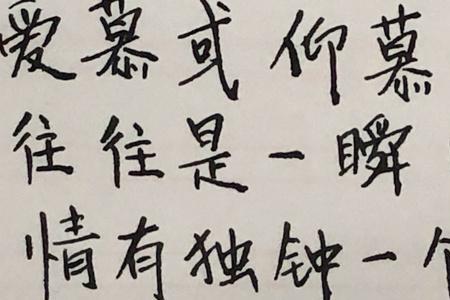 爱慕或仰慕
往往是一瞬
情有独钟一个